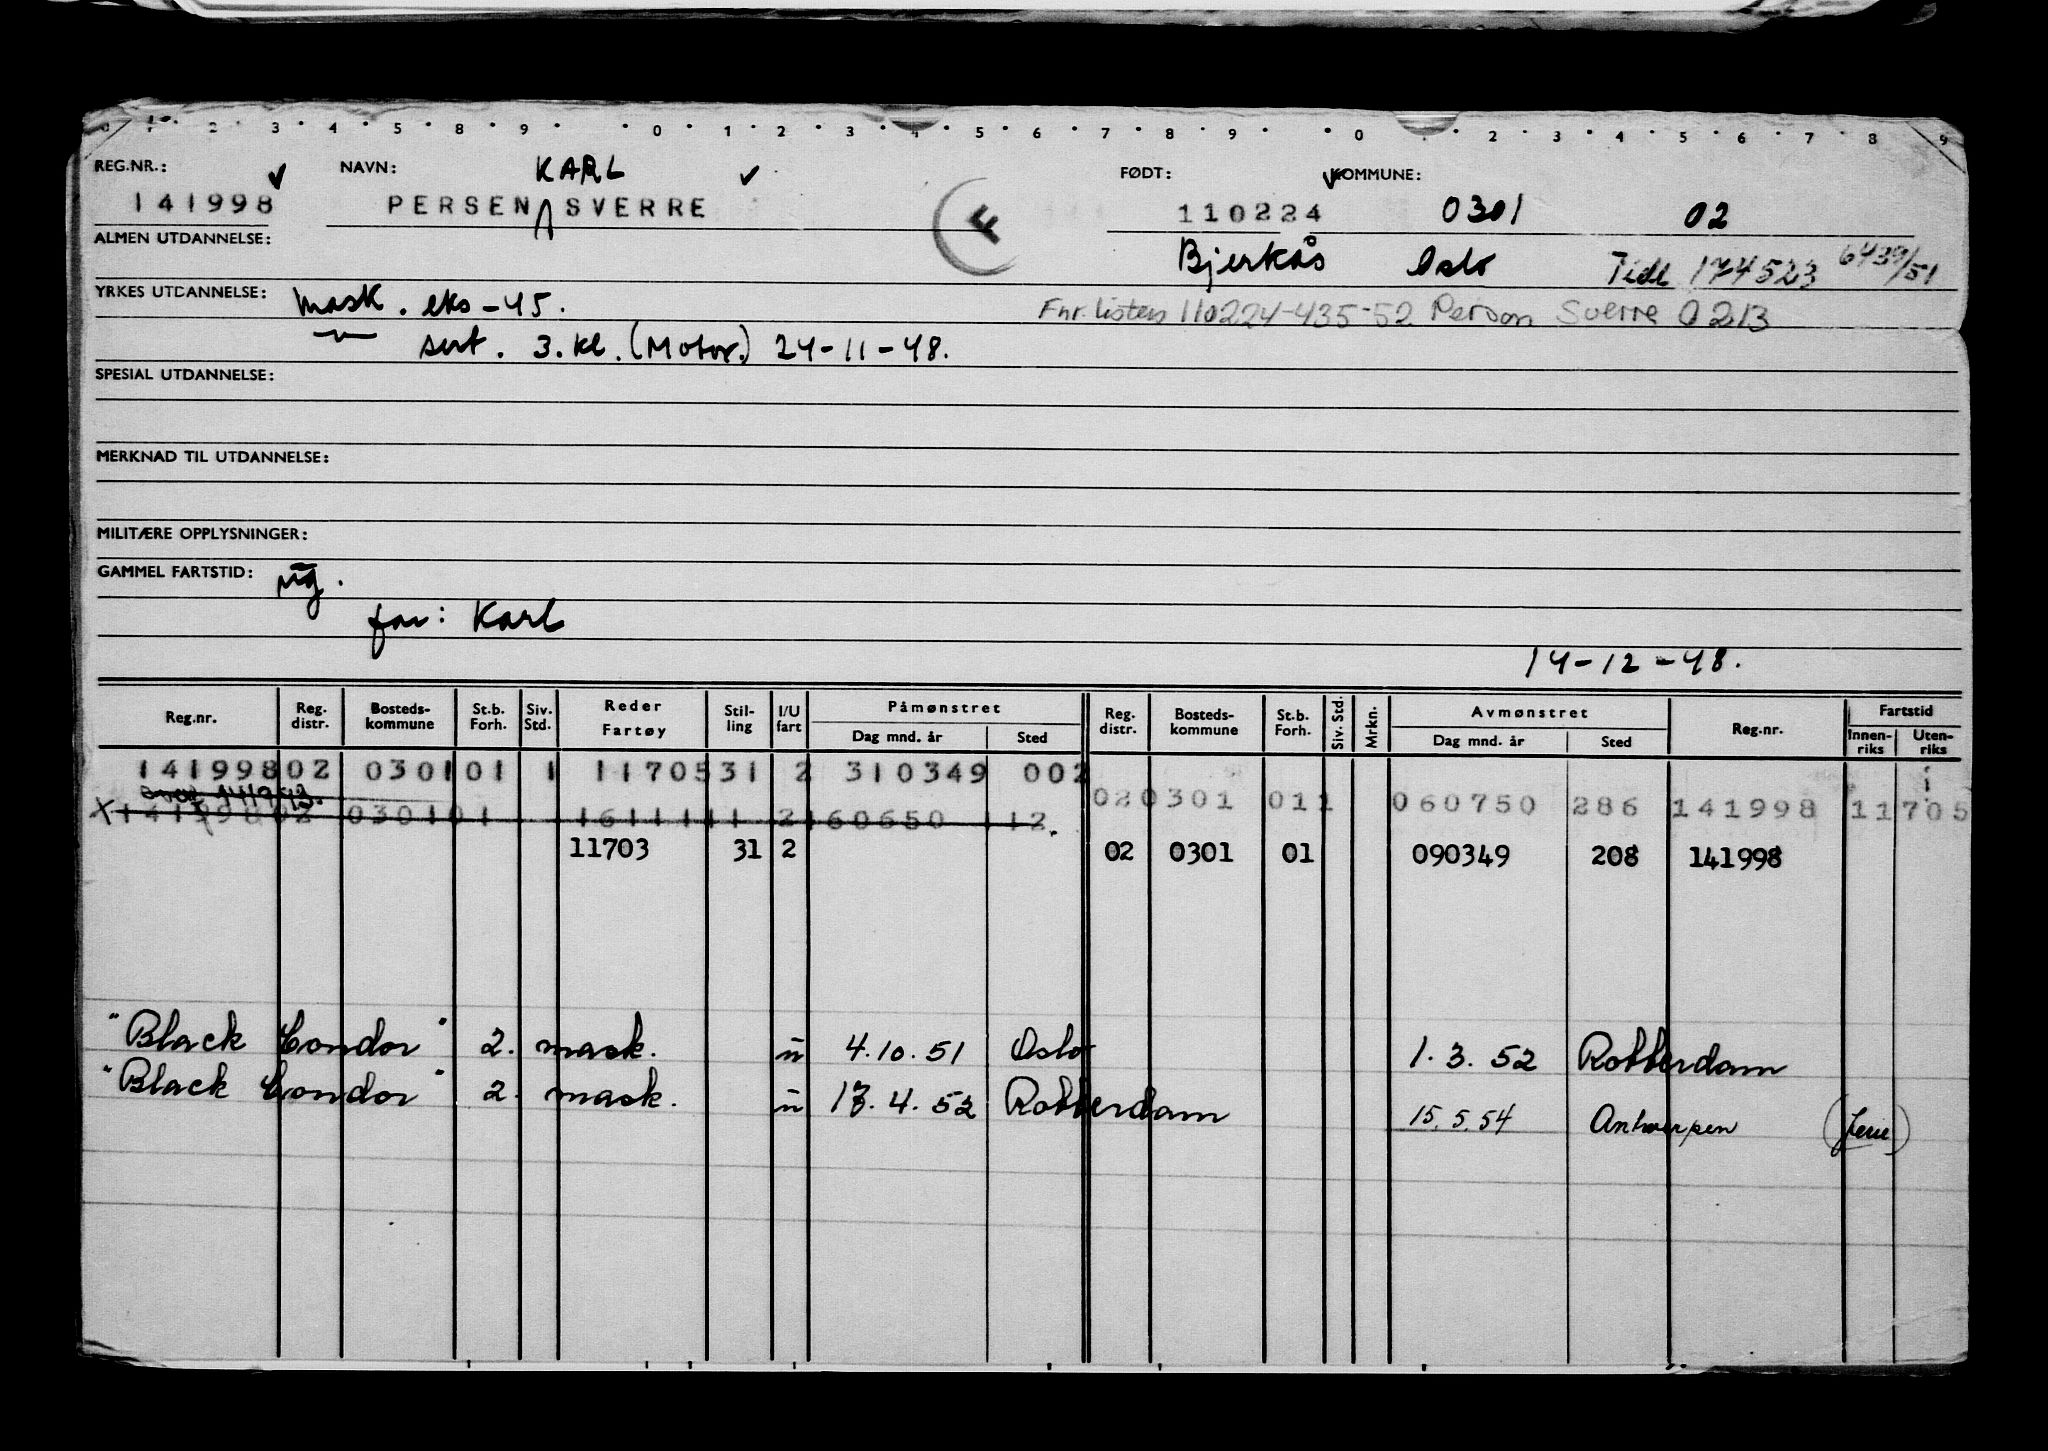 0 1 2 3 4 5 8 9 0 1 2 3 4 5 6 7 8 9 0 1 2 3 4 5 6 7 8 9
REG.NR.: NAVN: KARL FØDT: KOMMUNE:
141998 PERSEN SVERRE F 110224 0301 02
ALMEN UTDANNELSE: Bjerkås Oslo Tidl 174523 6439/51
YRKES UTDANNELSE: mask. eks -45. Fnr. listen 110224-435-52 Person Sverre 0213
sert. 3. kl. (Motor.) 24-11-48.
SPESIAL UTDANNELSE:
MERKNAD TIL UTDANNELSE:
MILITÆRE OPPLYSNINGER:
GAMMEL FARTSTID:
far: Karl
14-12-48.
Reg.nr. Reg. distr. Bosteds-kommune St.b. Forh. Siv. Std. Reder Fartøy Stil-ling I/U fart Påmønstret Dag mnd. år Sted Reg. distr. Bosteds-kommune St.b. Forh. Siv. Std. Mrkn. Avmønstret Dag mnd. år Sted Reg.nr. Fartstid Innen-riks Uten-riks
141998 02 0301 01 1 11705 31 2 310349 002
020301 011 060750 286 141998 11705
11703 31 2 02 0301 01 090349 208 141998
"Black Condor" 2. mask. u 4.10.51 Oslo 1.3.52 Rotterdam
"Black Condor" 2. mask. u 4.52 Rotterdam 15.5.54 Antwerpen (ferie)